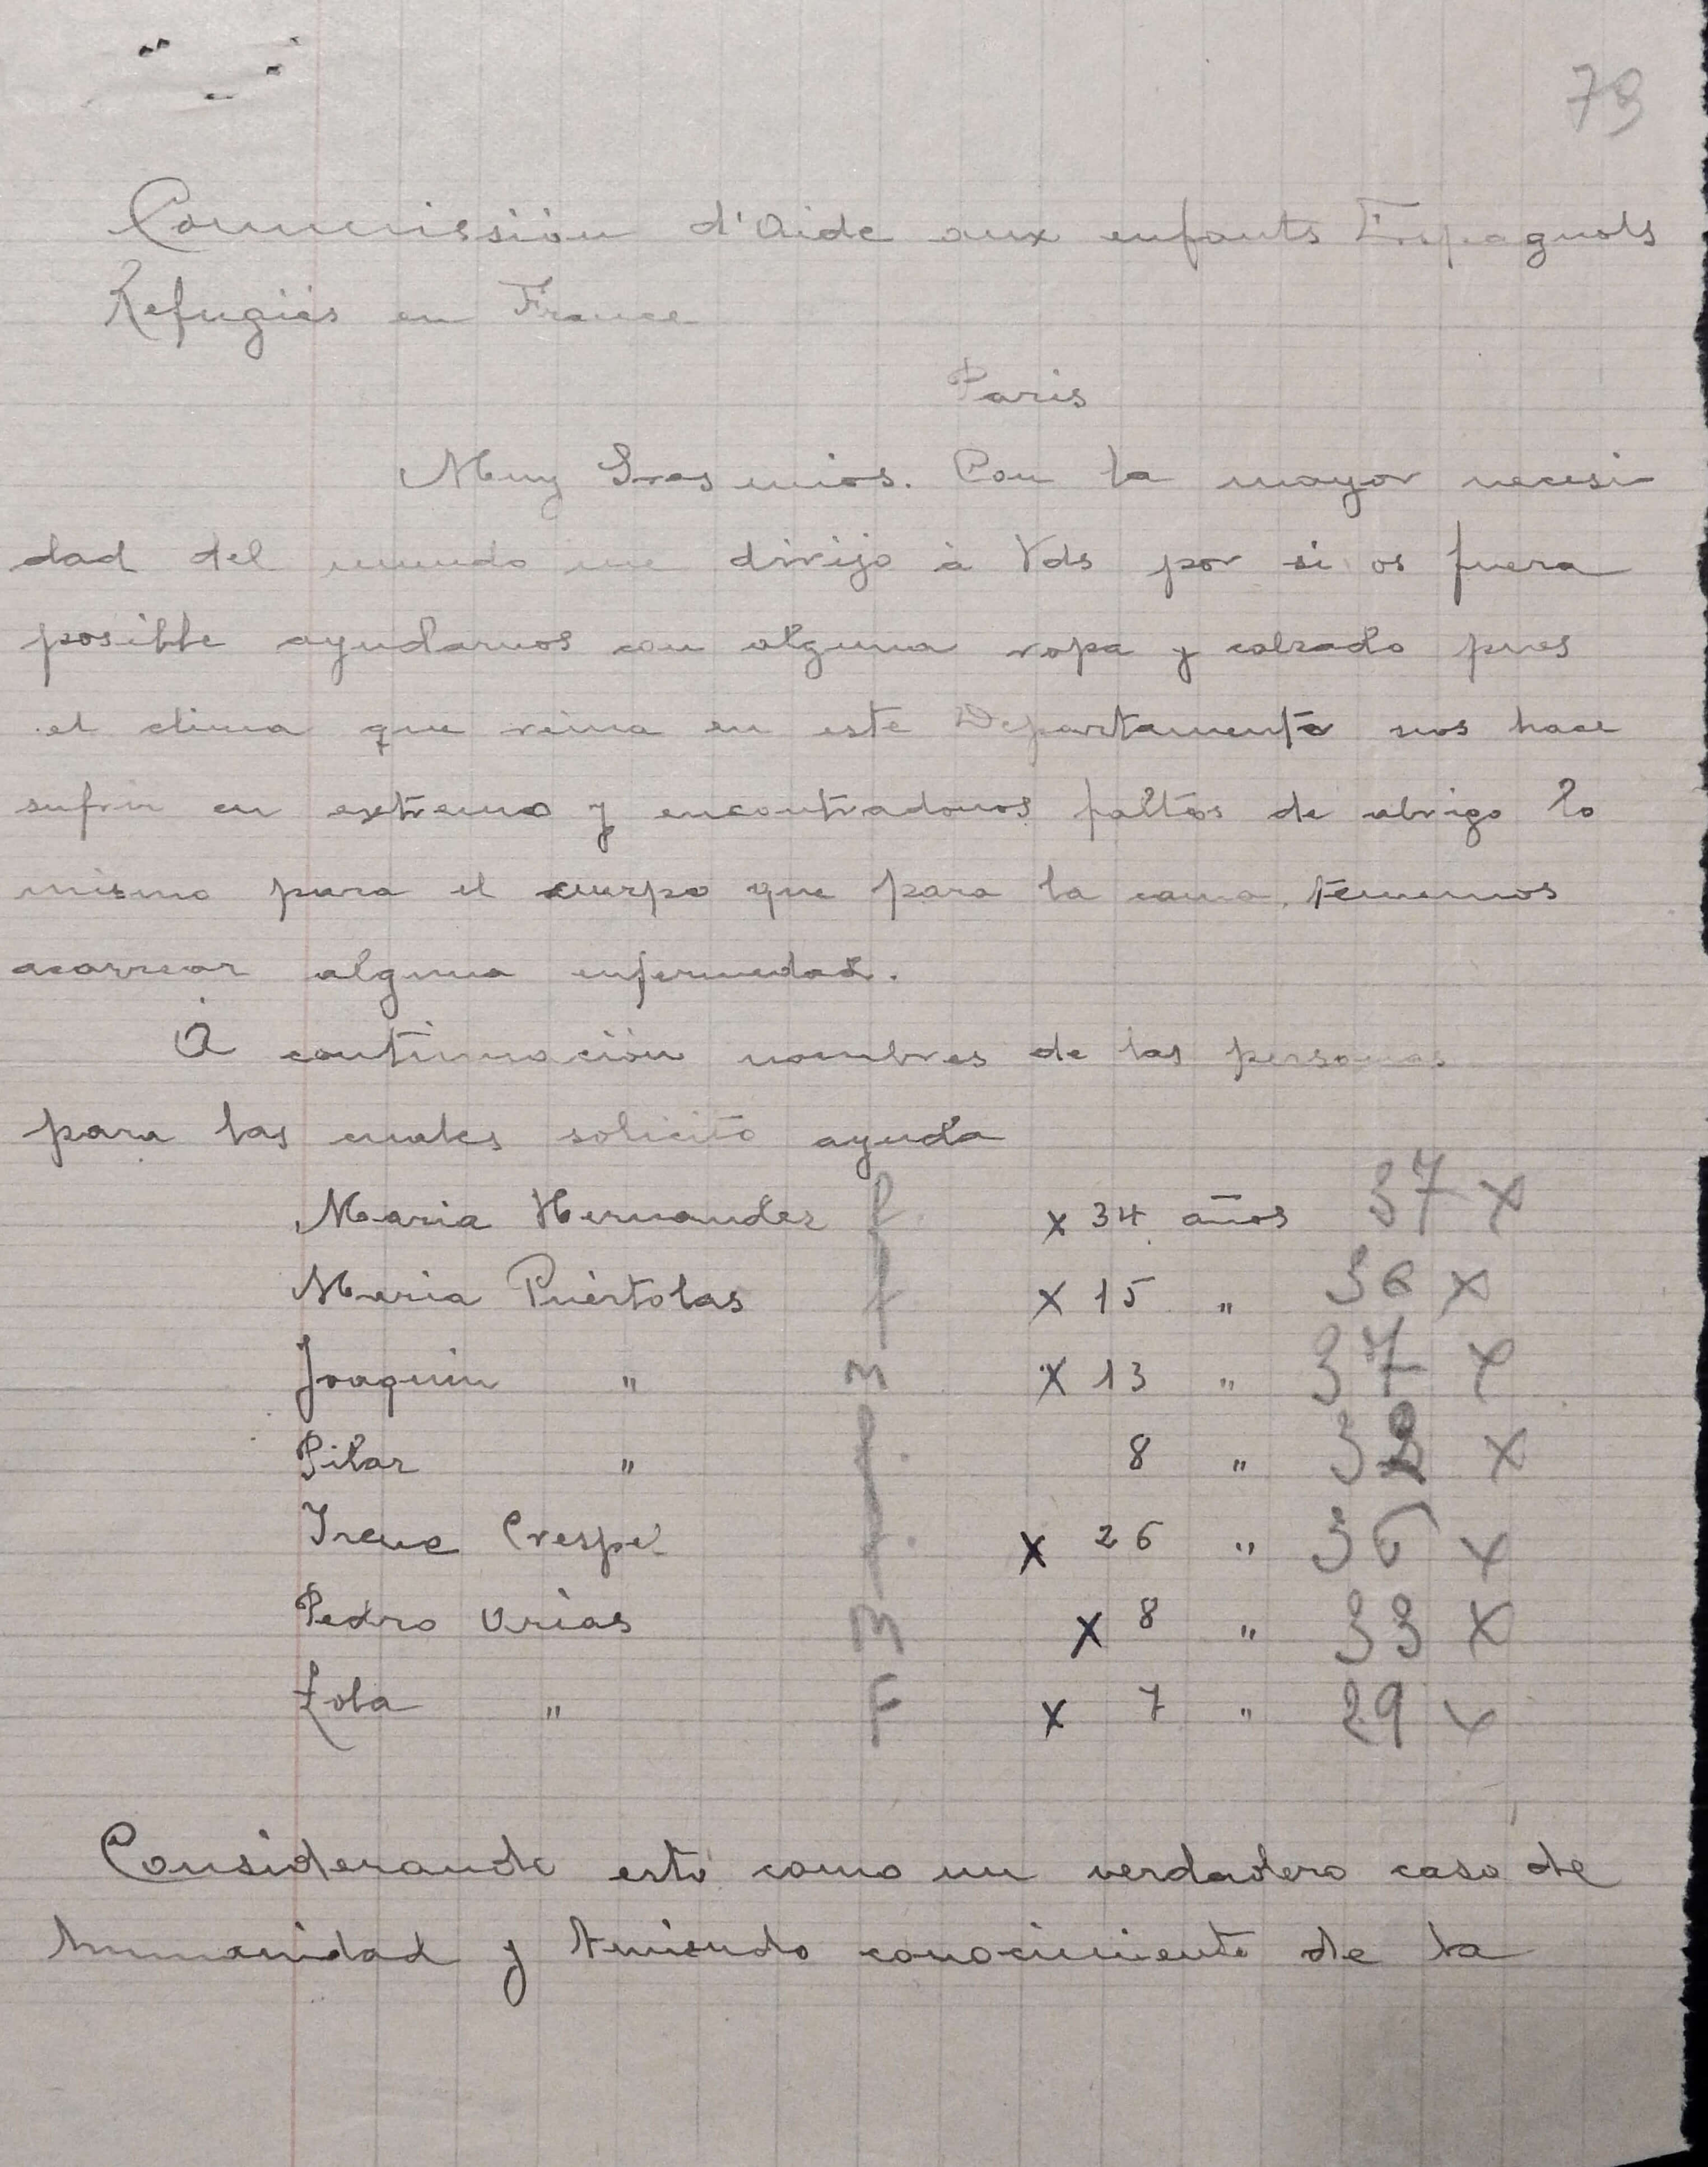 79
Commissiión d'Aide aux enfants Espagnols
Refugiés en France
Paris
Muy Sres mios. Con la mayor necesi-
dad del mundo me dirijo à Vds por si os fuera
posible ayudarnos con alguna ropa y calzado pues
el clima que reina en este Departamento nos hace
sufrir en extremo y encontradonos faltos de abrigo lo
mismo para el cuerpo que para la cama, tememos
acarrear alguna enfermedad.
Á continuaciión nombres de las personas
para las cuales solicito ayuda
Maria Hernandez f. x 34 años 37 x
Maria Puértolas f x 15 " 36 x
Joaquin " m x 13 " 37 x
Pilar " f. 8 " 32 x
Irene Crespi f. x 26 " 36 x
Pedro Arias M x 8 " 33 x
Lola " F x 7 " 29 x
Considerando esto como un verdadero caso de
humanidad y teniendo conocimiento de la